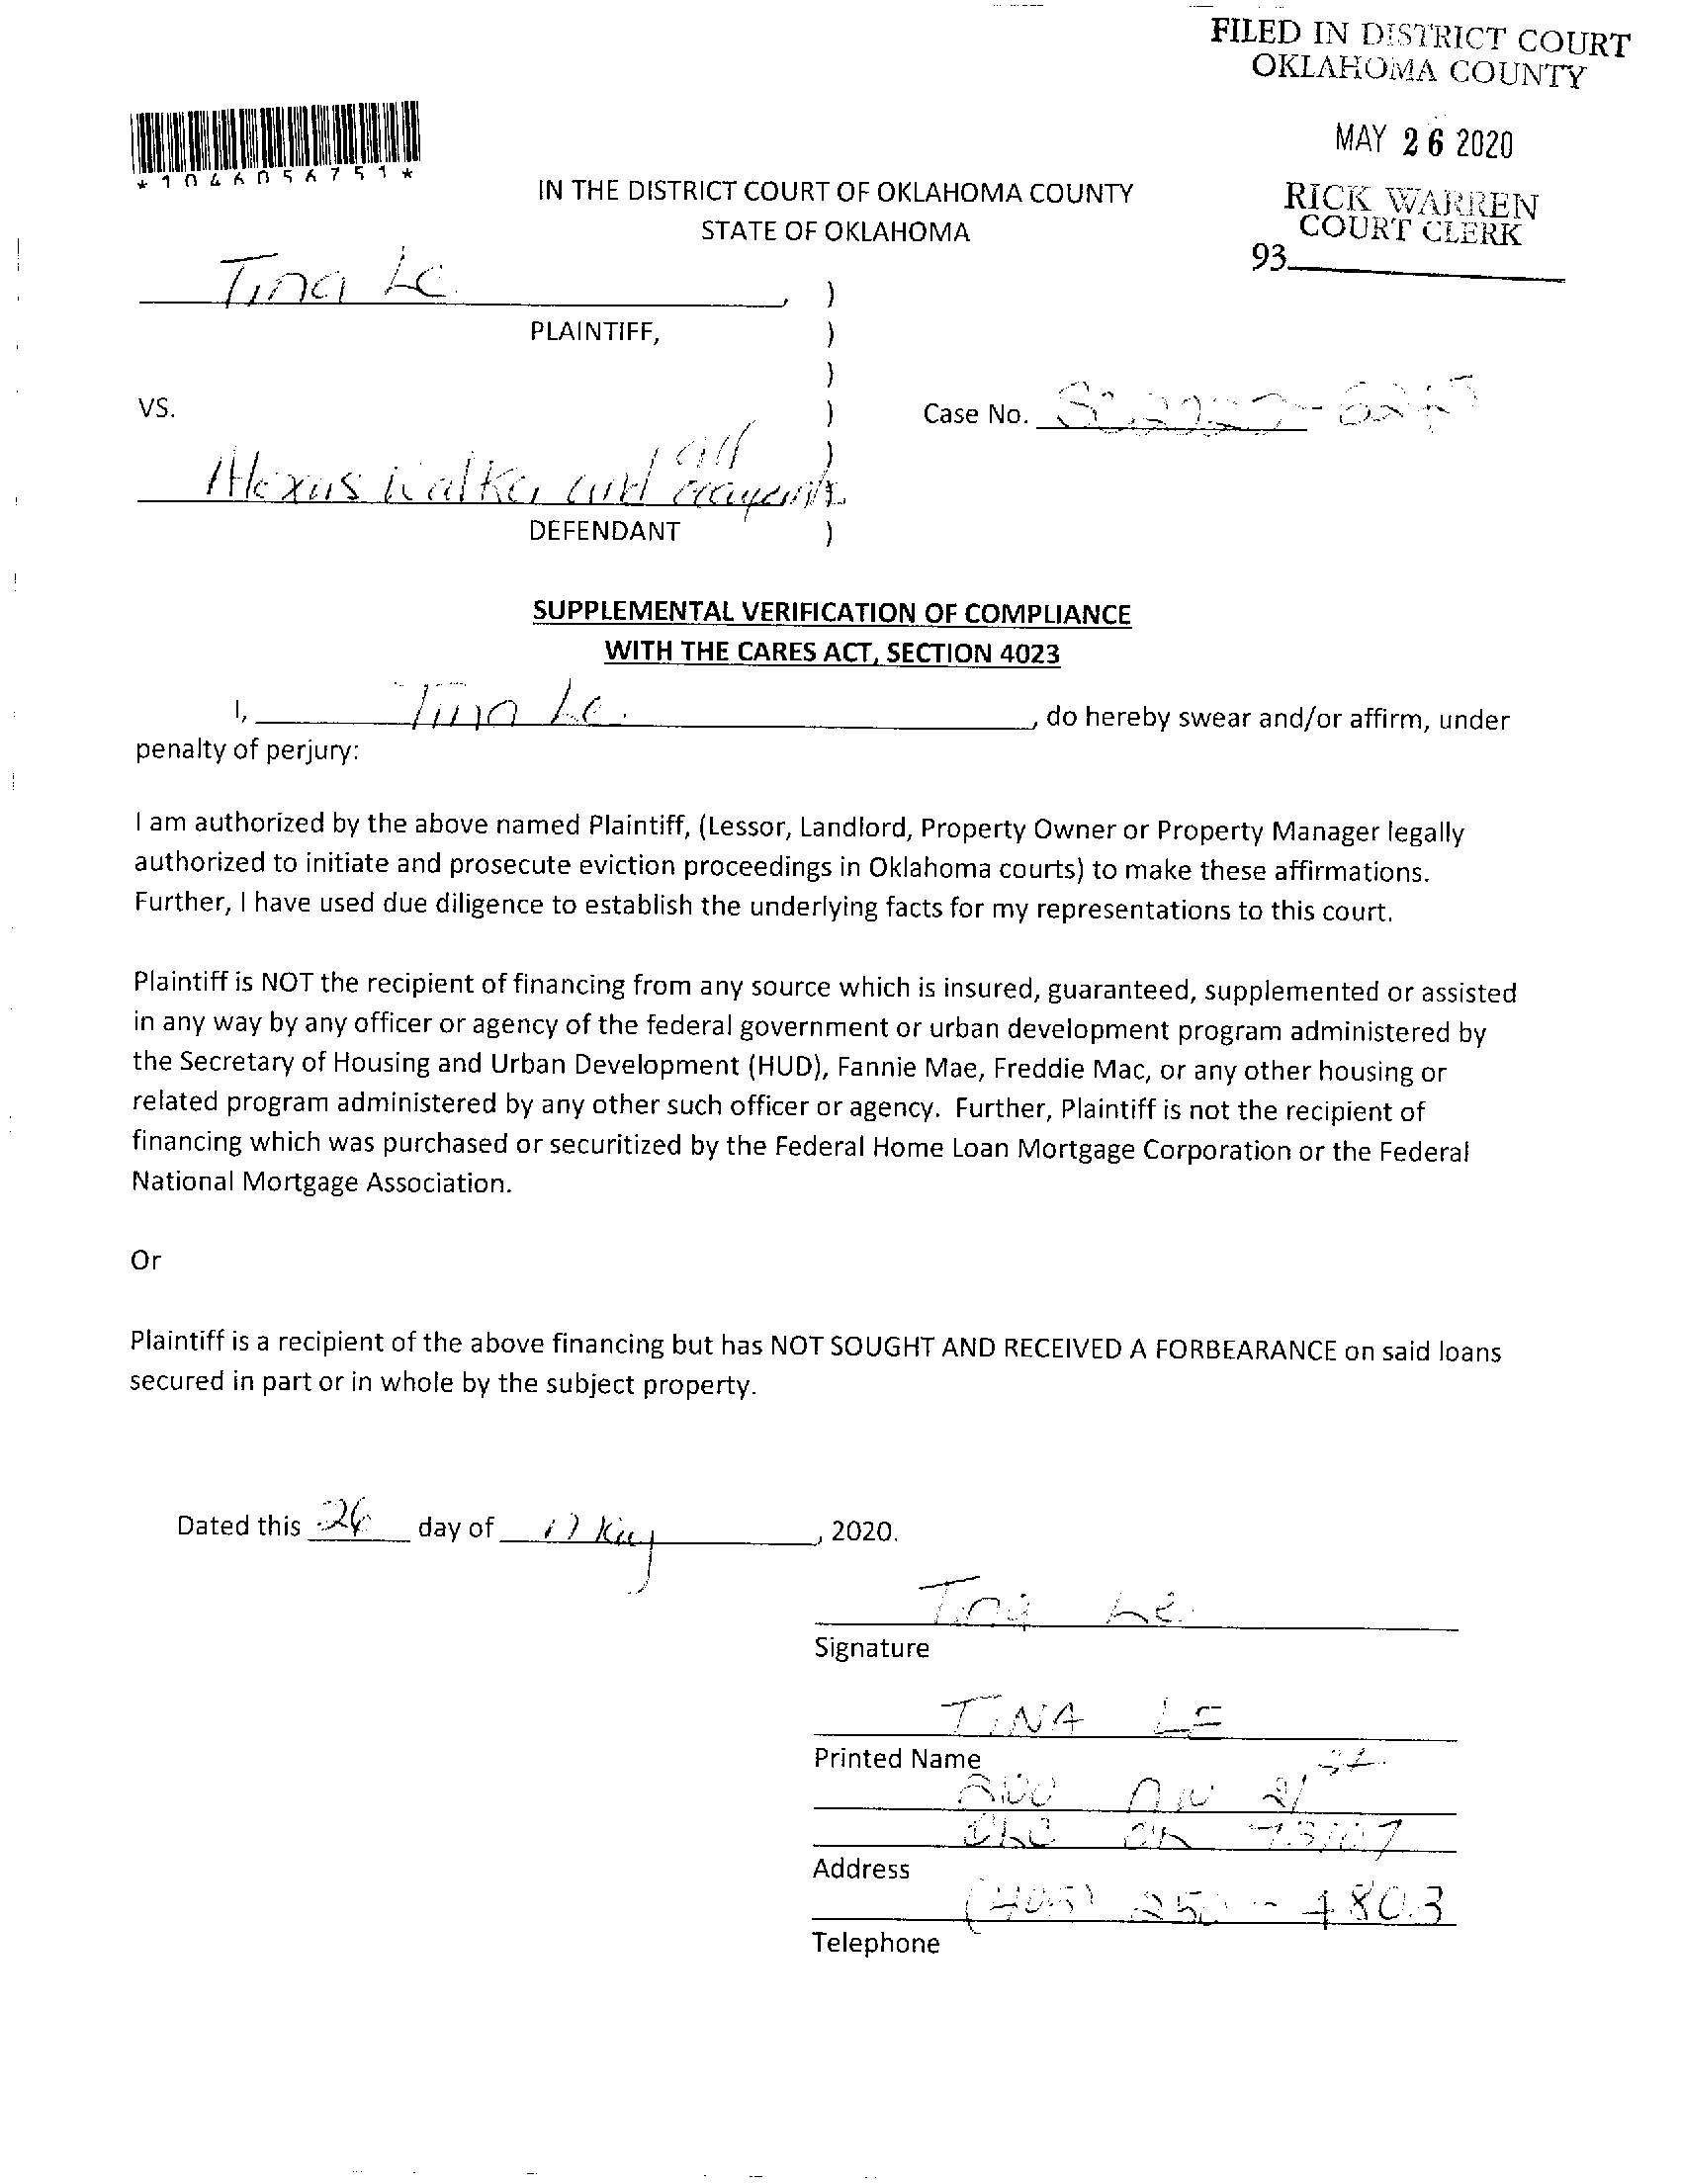 FILED IN DISTRICT COURT
OKLAHOMA COUNTY
MAY 26 2020
RICK WARREN
COURT CLERK
93
*1046056751*
IN THE DISTRICT COURT OF OKLAHOMA COUNTY
STATE OF OKLAHOMA
Tina Le
PLAINTIFF,
VS.
Case No.
Alexus Walker and all occupants
DEFENDANT
SUPPLEMENTAL VERIFICATION OF COMPLIANCE
WITH THE CARES ACT, SECTION 4023
I, Tina Le, do hereby swear and/or affirm, under
penalty of perjury:
I am authorized by the above named Plaintiff, (Lessor, Landlord, Property Owner or Property Manager legally
authorized to initiate and prosecute eviction proceedings in Oklahoma courts) to make these affirmations.
Further, I have used due diligence to establish the underlying facts for my representations to this court.
Plaintiff is NOT the recipient of financing from any source which is insured, guaranteed, supplemented or assisted
in any way by any officer or agency of the federal government or urban development program administered by
the Secretary of Housing and Urban Development (HUD), Fannie Mae, Freddie Mac, or any other housing or
related program administered by any other such officer or agency. Further, Plaintiff is not the recipient of
financing which was purchased or securitized by the Federal Home Loan Mortgage Corporation or the Federal
National Mortgage Association.
Or
Plaintiff is a recipient of the above financing but has NOT SOUGHT AND RECEIVED A FORBEARANCE on said loans
secured in part or in whole by the subject property.
Dated this 26 day of May, 2020.
Tina Le
Signature
TINA LE
Printed Name
NW 21st
OKC OK 73107
Address
(405) 4803
Telephone